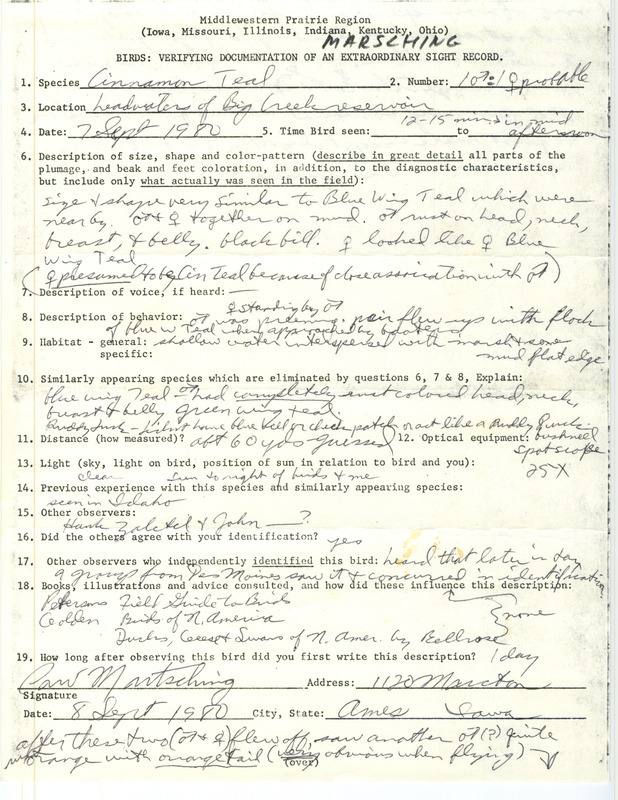 Middlewestern Prairie Region
(Iowa, Missouri, Illinois, Indiana, Kentucky, Ohio)
MARSCHING
BIRDS: VERIFYING DOCUMENTATION OF AN EXTRAORDINARY SIGHT RECORD.
1. Species Cinnamon Teal 2. Number: 1♂ 1♀ probable
3. Location headwaters of Big Creek reservoir
4. Date: 7 Sept 1980 5. Time Bird seen: 12-15 min. in mid to afternoon
6. Description of size, shape and color-pattern (describe in great detail all parts of the
plumage, and beak and feet coloration, in addition, to the diagnostic characteristics,
but include only what actually was seen in the field):
size & shape very similar to Blue Wing Teal which were
nearby. ♂ & ♀ together on mud. ♂ rust on head, neck,
breast, & belly. black bill. ♀ looked like ♀ Blue
Wing Teal
(♀ presumed to be Cin Teal because of close association with ♂)
7. Description of voice, if heard: —
♀ standing by ♂
8. Description of behavior: ♂ was preening. pair flew up with flock
of blue w Teal when approached by boaters
9. Habitat - general: shallow water interspersed with marsh & some
specific: mud flat edge
10. Similarly appearing species which are eliminated by questions 6, 7 & 8, Explain:
blue wing Teal - ♂ had completely rust colored head, neck,
breast & belly green wing teal.
Ruddy Duck - didn't have blue bill or cheek patch or act like a Ruddy Duck
11. Distance (how measured)? abt 60 yds guessed 12. Optical equipment: bushnell
spotscope
25X
13. Light (sky, light on bird, position of sun in relation to bird and you):
clear sun to right of birds & me
14. Previous experience with this species and similarly appearing species:
seen in Idaho
15. Other observers:
Hank Zaletel & John — ?
16. Did the others agree with your identification? yes
17. Other observers who independently identified this bird: heard that later in day
a group from Des Moines saw it & concurred in identification
18. Books, illustrations and advice consulted, and how did these influence this description:
Petersons Field Guide to Birds
Golden Birds of N. America
none
Ducks, Geese & Swans of N. Amer. by Bellrose
19. How long after observing this bird did you first write this description? 1 day
Paul Martsching Address: 1120 Marston
Signature
Date: 8 Sept 1980 City, State: Ames Iowa
after these two (♂ & ♀) flew off, saw another ♂(?) quite
orange with orange tail (very obvious when flying)
(over)